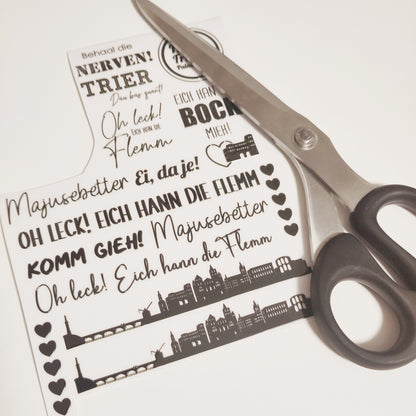 Behaal die
NERVEN!
TRIER
Dau bas gaas!
Oh leck!
EICH HANN DIE
Flemm
EICH HAN
BOCK
MIEH!
Majusebetter Ei, da je!
OH LECK! EICH HANN DIE FLEMM
KOMM GIEH! Majusebetter
Oh leck! Eich hann die Flemm